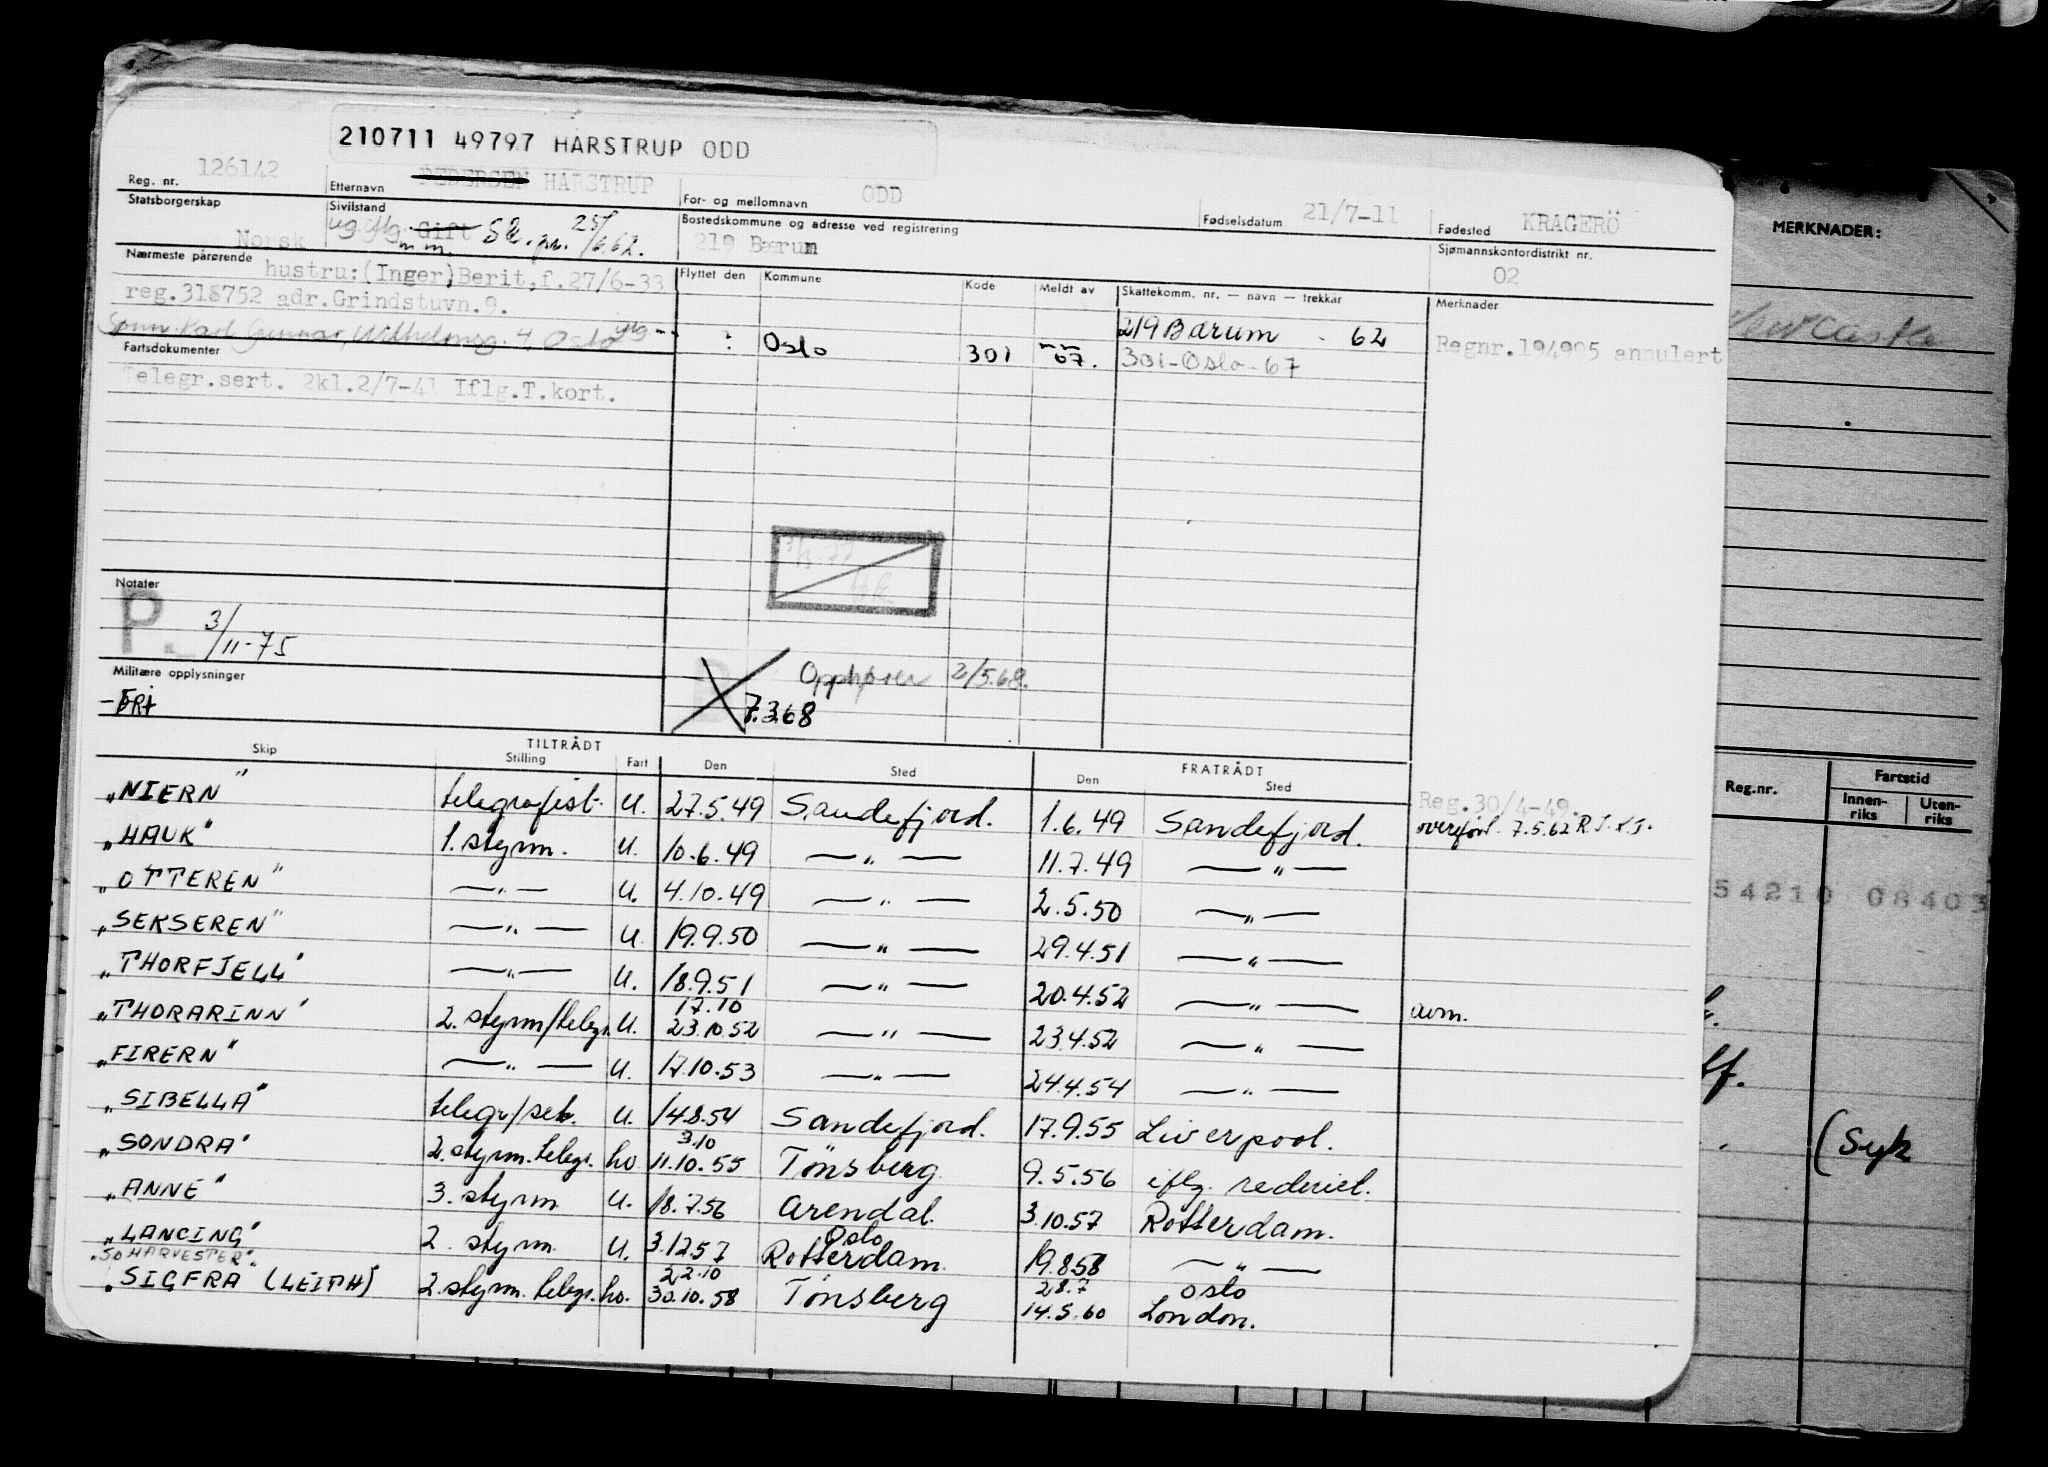 210711 49797 HARSTRUP ODD
Reg. nr. 126142 Etternavn PEDERSEN HARSTRUP For- og mellomnavn ODD Fødselsdatum 21/7-11 Fødested KRAGERÖ
Statsborgerskap Norsk Sivilstand ug. iflg. m.m. Gift 25/6.62. Bostedskommune og adresse ved registrering 219 Bærum Sjømannskontordistrikt nr. 02
Nærmeste pårørende hustru:(Inger)Berit,f.27/6-33
reg.318752 adr.Grindstuvn.9.
Sønn Karl Gunnar, Wilhelmsg. 4, Oslo
Flyttet den Kommune Kode Meldt av Skattekomm. nr. — navn — trekkår Merknader
219 Bærum - 62
? Oslo 301 67. 301-Oslo-67
Regnr. 194905 annulert
Fartsdokumenter
Telegr.sert. 2kl.2/7-41 Iflg.T.kort.
Notater
P. 3/11-75
Militære opplysninger
-FRI
Opphører 2/5.68.
7.3.68
TILTRÅDT FRATRÅDT
Skip Stilling Fart Den Sted Den Sted
Reg.30/4-49.
"NIERN" telegrafist. U. 27.5.49 Sandefjord. 1.6.49 Sandefjord. overført 7.5.62
"HAUK" 1. styrm. U. 10.6.49 — " — 11.7.49 — " —
"OTTEREN" — " — U. 4.10.49 — " — 2.5.50 — " —
"SEKSEREN" — " — U. 19.9.50 — " — 29.4.51 — " —
"THORFJELL" — " — U. 18.9.51 — " — 20.4.52 — " —
"THORARINN" 2. styrm/telegr. U. 17.10 23.10.52 — " — 23.4.52 — " — avm.
"FIRERN" — " — U. 17.10.53 — " — 24.4.54 — " —
"SIBELLA" telegr/sek. U. 14.8.54 Sandefjord. 17.9.55 Liverpool.
"SONDRA" 2. styrm. telegr. ho 3.10 11.10.55 Tønsberg 9.5.56 iflg. rederiet.
"ANNE" 3. styrm U. 18.7.56 Arendal. 3.10.57 Rotterdam.
"LANCING" 2. styrm. U. 3.12.57 Oslo Rotterdam. 19.8.58 — " —
"SO HARVESTER" 22.10 28.7 Oslo
"SIGFRA (LEITH) 2. styrm. telegr. ho. 30.10.58 Tønsberg 14.5.60 London.
MERKNADER:
Newcastle
Reg.nr. Fartstid
Innenriks Utenriks
54210 08403
(Syk